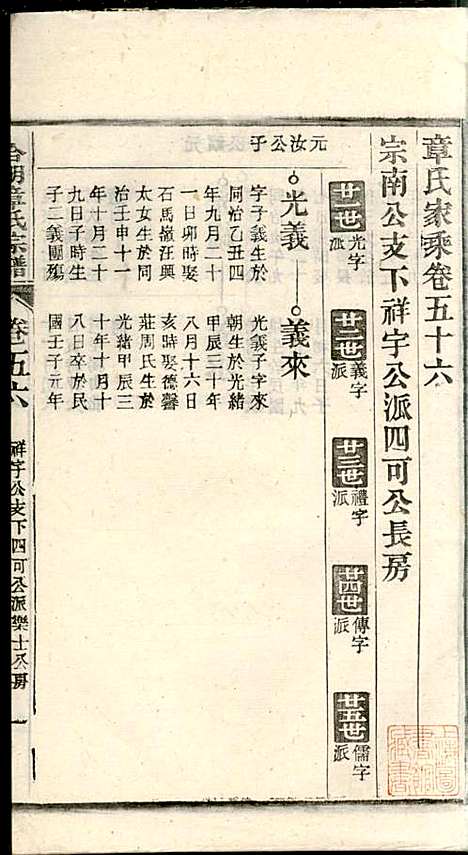 章氏家乘卷五十六
宗南公支下祥字公派四可公長房
廿一世 光字派
廿二世 義字派
廿三世 禮字派
廿四世 傳字派
廿五世 儒字派
元汝公子
光義
字子義生於
同治乙丑四
年九月二十
一日卯時娶
石馬嶺汪興
太女生於同
治壬申十一
年十月二十
九日子時生
子二義團殤
義來
光義子字來
朝生於光緒
甲辰三十年
八月十六日
亥時娶德馨
莊周氏生於
光緒甲辰三
十年十月十
八日卒於民
國壬子元年
章氏宗譜
卷五六
祥字公支下四可公派樂士公房
一